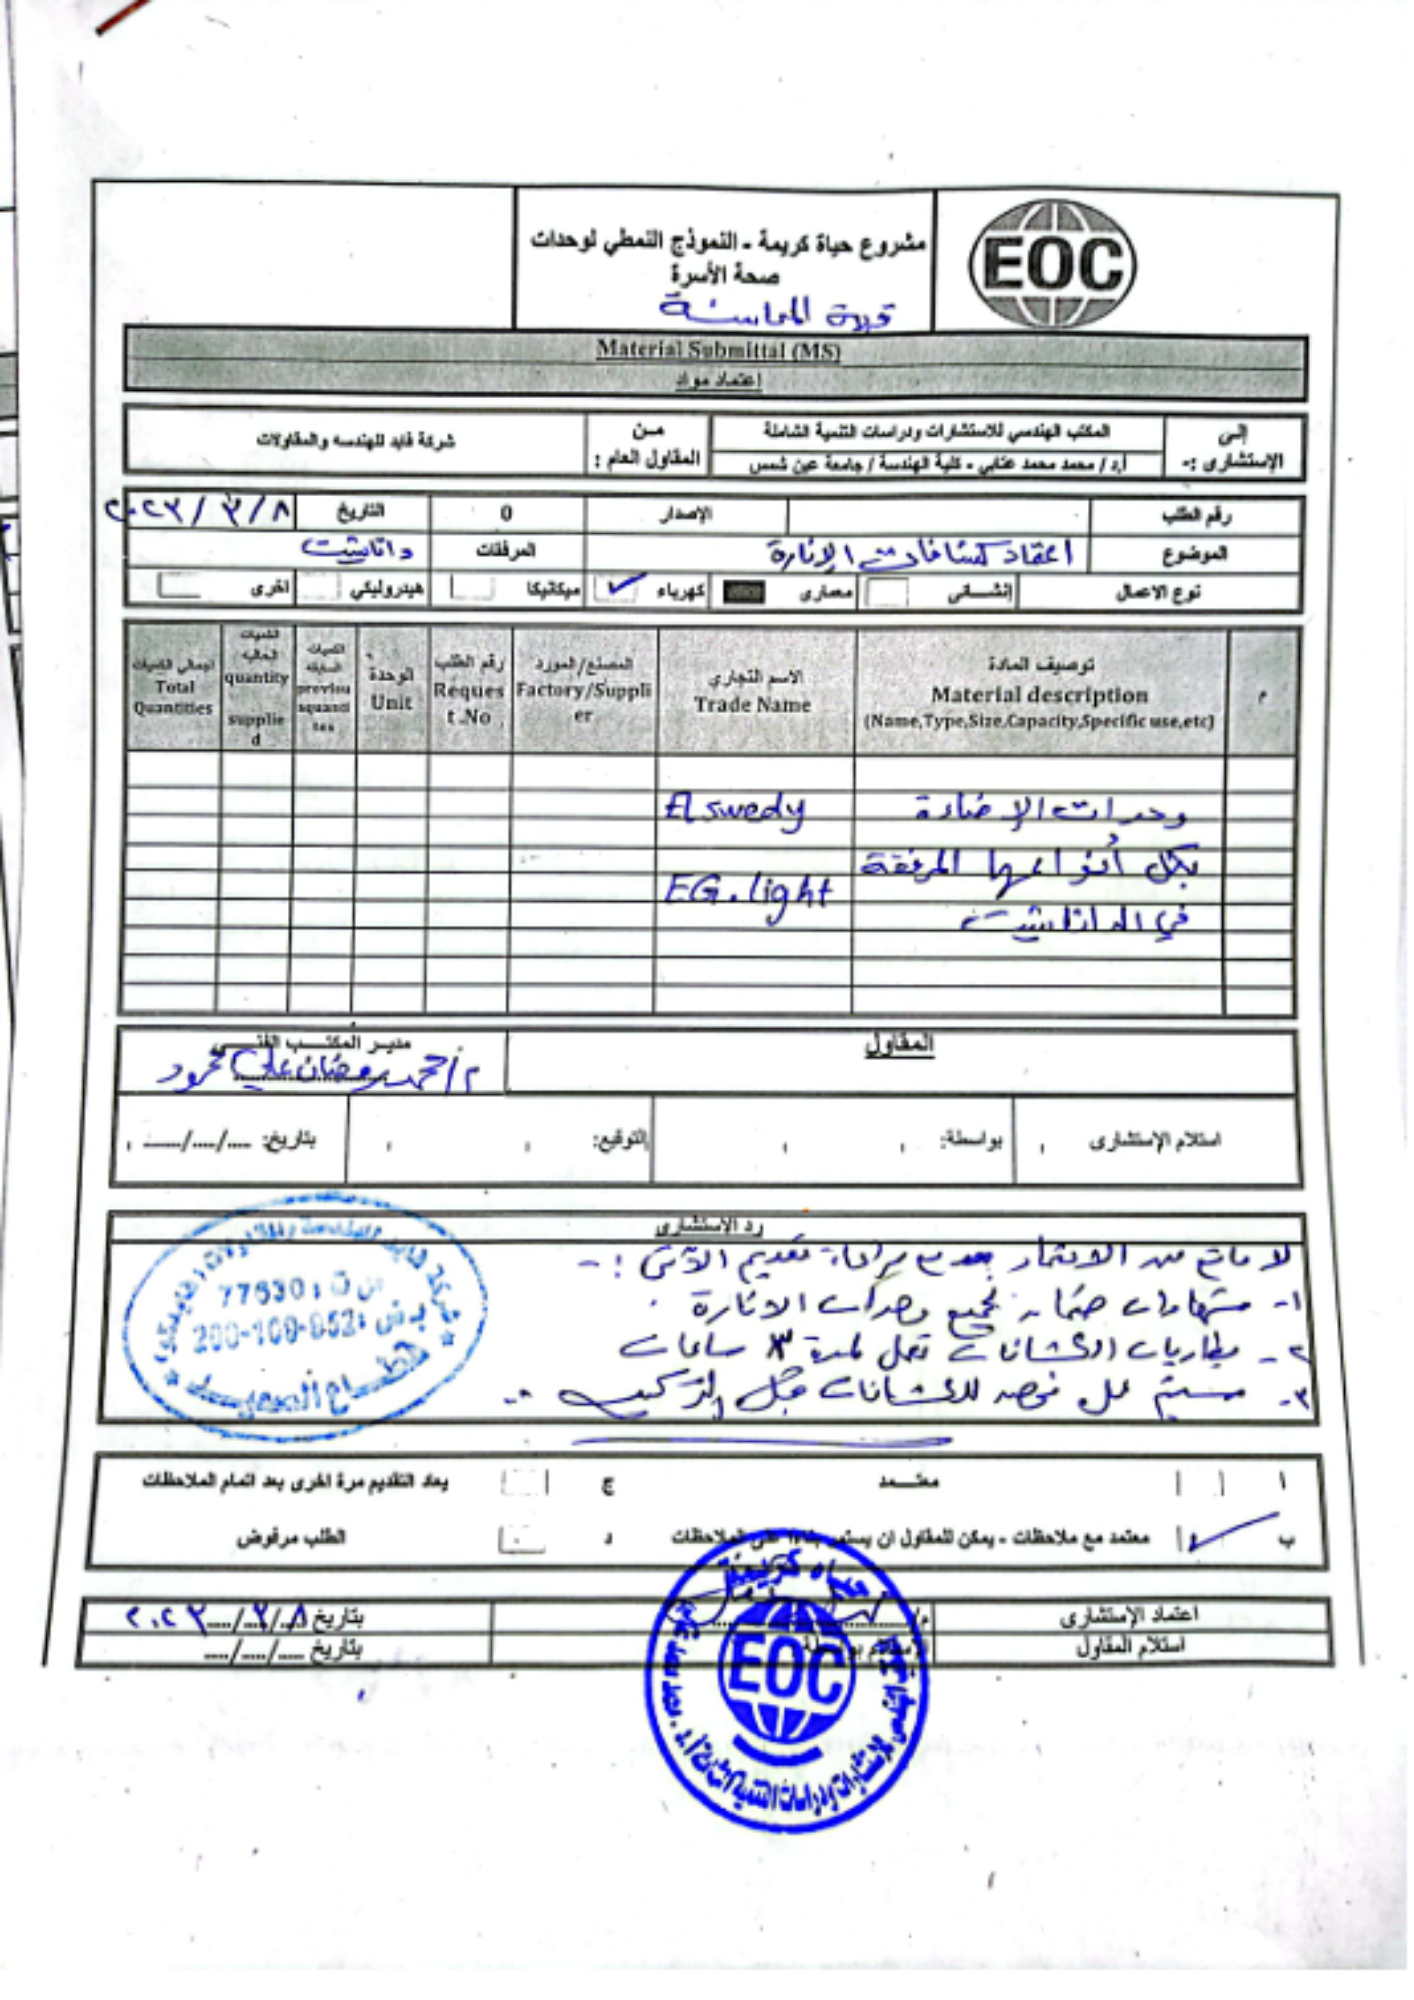 EOC
مشروع حياة كريمة - النموذج النمطي لوحدات
صحة الأسرة
قرية
Material Submittal (MS)
اعتماد مواد
إلى الإستشارى :-
المكتب الهندسي للاستشارات ودراسات التنمية الشاملة
أ.د / محمد محمد عتابي - كلية الهندسة / جامعة عين شمس
من المقاول العام :
شركة فايد للهندسه والمقاولات
رقم الطلب الإصدار 0 التاريخ ٢٠٢٣/٣/٨
الموضوع اعتماد كشافات الإنارة المرفقات داتاشيت
نوع الاعمال إنشائى معمارى كهرباء ✓ ميكانيكا هيدروليكي اخرى
م
توصيف المادة
Material description
(Name,Type,Size,Capacity,Specific use,etc)
الاسم التجاري
Trade Name
المصنع/المورد
Factory/Supplier
رقم الطلب
Request .No
الوحدة
Unit
الكميات السابقة
previous quantities
الكميات الحالية
quantity supplied
اجمالي الكميات
Total Quantities
وحدات الإضاءة Elswedy
بكل أنواعها المرفقة
في الداتاشيت EG.light
المقاول مدير المكتب الفني
م/ احمد رمضان علي محمود
استلام الإستشارى بواسطة: التوقيع: بتاريخ: ..../..../......
رد الاستشارى
لا مانع من الاعتماد مع مراعاة تقديم الآتى :-
١- شهادات ضمان لجميع وحدات الانارة .
٢- بطاريات الكشافات تعمل لمدة ٣ ساعات
٣- سيتم عمل فحص للكشافات قبل التركيب
77630
200-109-952
أ معتمد ج يعاد التقديم مرة اخرى بعد اتمام الملاحظات
ب ✓ معتمد مع ملاحظات - يمكن للمقاول ان يستمر بناءا على الملاحظات د الطلب مرفوض
اعتماد الإستشارى م/ بتاريخ ٢٠٢٣/٣/٨
استلام المقاول بتاريخ ..../..../....
حياه كريمة
EOC